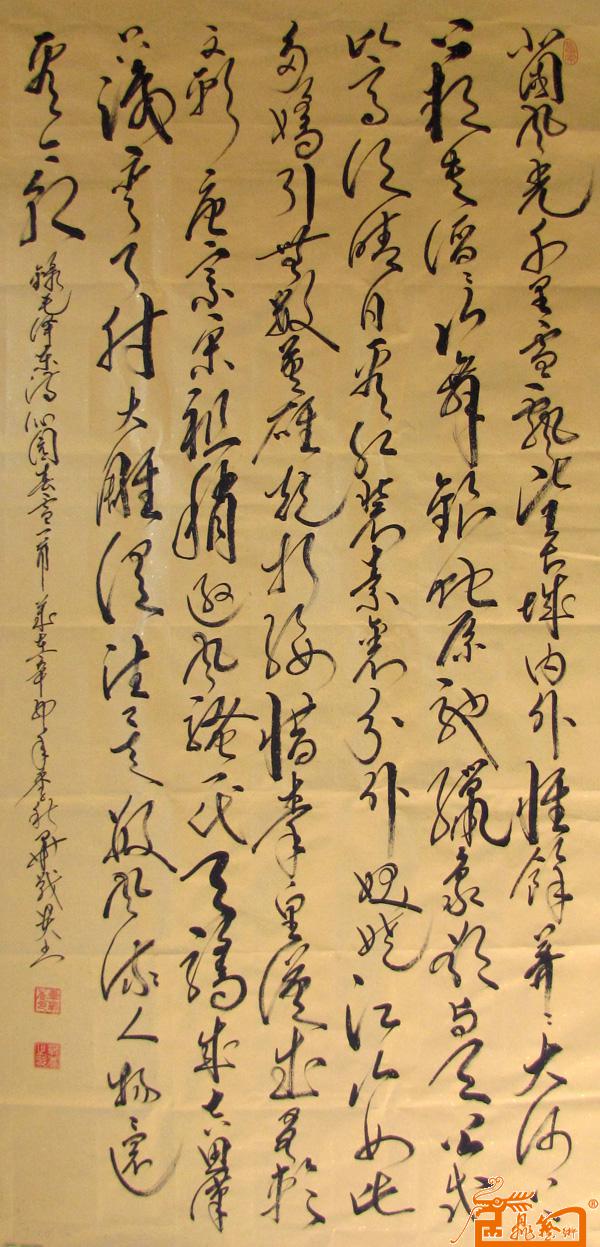 北國風光千里雪飄望長城内外惟餘莽莽大河上
下頓失滔滔山舞銀蛇原馳蠟象欲与天公試
比高須晴日看紅裝素裹分外妖嬈江山如此
多嬌引無數英雄競折腰惜秦皇漢武略輸
文彩唐宗宋祖稍遜風騷一代天驕成吉思漢
只識彎弓射大雕俱往矣數風流人物還
看今朝
錄毛澤東詞沁園春雪一首 歲在辛卯年